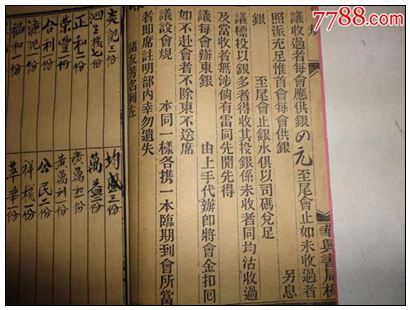 7788.com
議收過者每會應供銀の元 至尾會止如未收過者
照派充足惟首會每會供銀 另息
銀 至尾會止銀水俱以司碼兌足
議標投以銀多者得收其投銀係未收者同均沾收過
及當收者無涉倘有雷同先開先得
議每會辦東銀 由上手代辦即將會金扣回
如不赴會者不除東不送席
議設會規 本同一樣各携一本臨期到會所當
者即席註明部内幸勿遺失
諸友芳名列左
炎記二份
均盛三份
泗生棧七份
萬益二份
正和一份
廣萬和一份
榮豐一份
黃萬利一份
合利一份
公民二份
祥棧一份
昭和一份
萃華一份